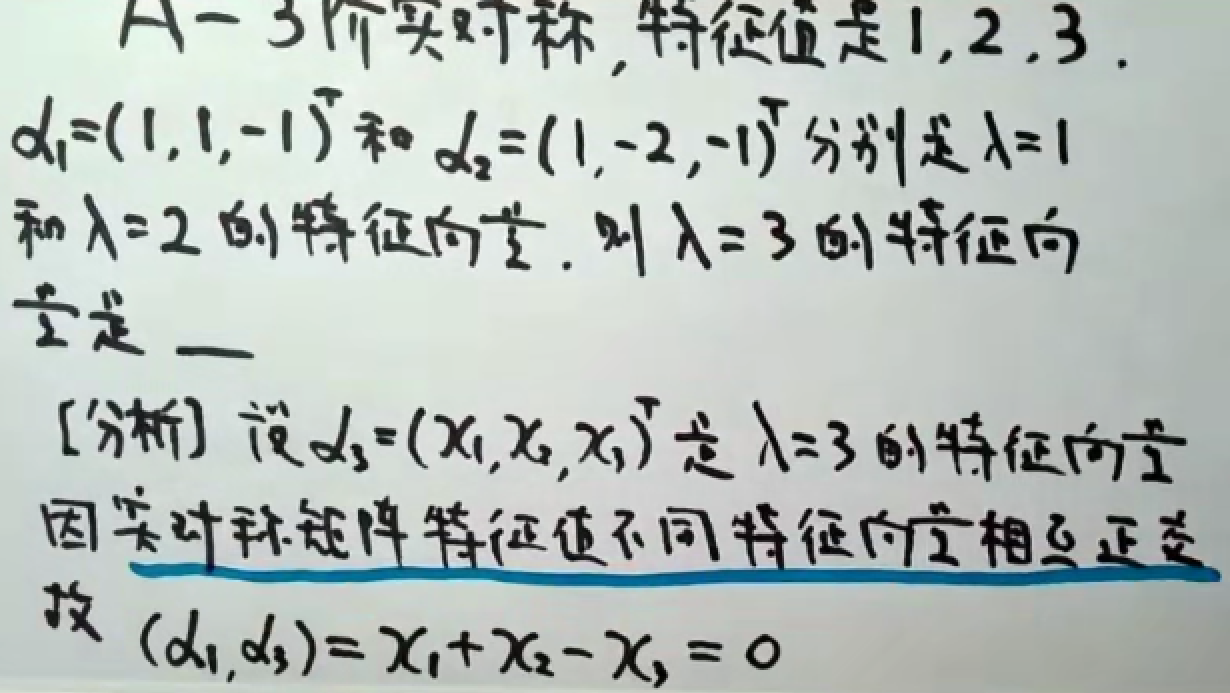 A-3阶实对称,特征值是1,2,3.
α₁=(1,1,-1)ᵀ和α₂=(1,-2,-1)ᵀ分别是λ=1
和λ=2的特征向量.则λ=3的特征向
量是 __
[分析]设α₃=(x₁,x₂,x₃)ᵀ是λ=3的特征向量
因实对称矩阵特征值不同特征向量相互正交
故 (α₁,α₃)=x₁+x₂-x₃=0